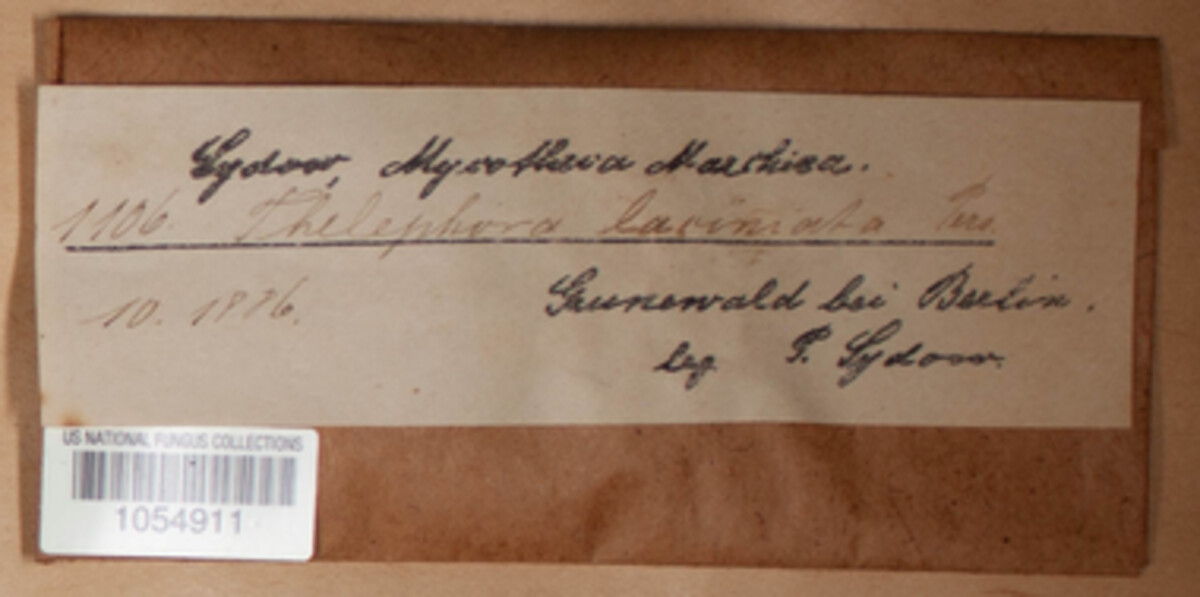 Sydow, Mycotheca Marchica.
1106. Thelephora laciniata Pers
10. 1886.
Grunewald bei Berlin.
leg. P. Sydow.
US NATIONAL FUNGUS COLLECTIONS
1054911